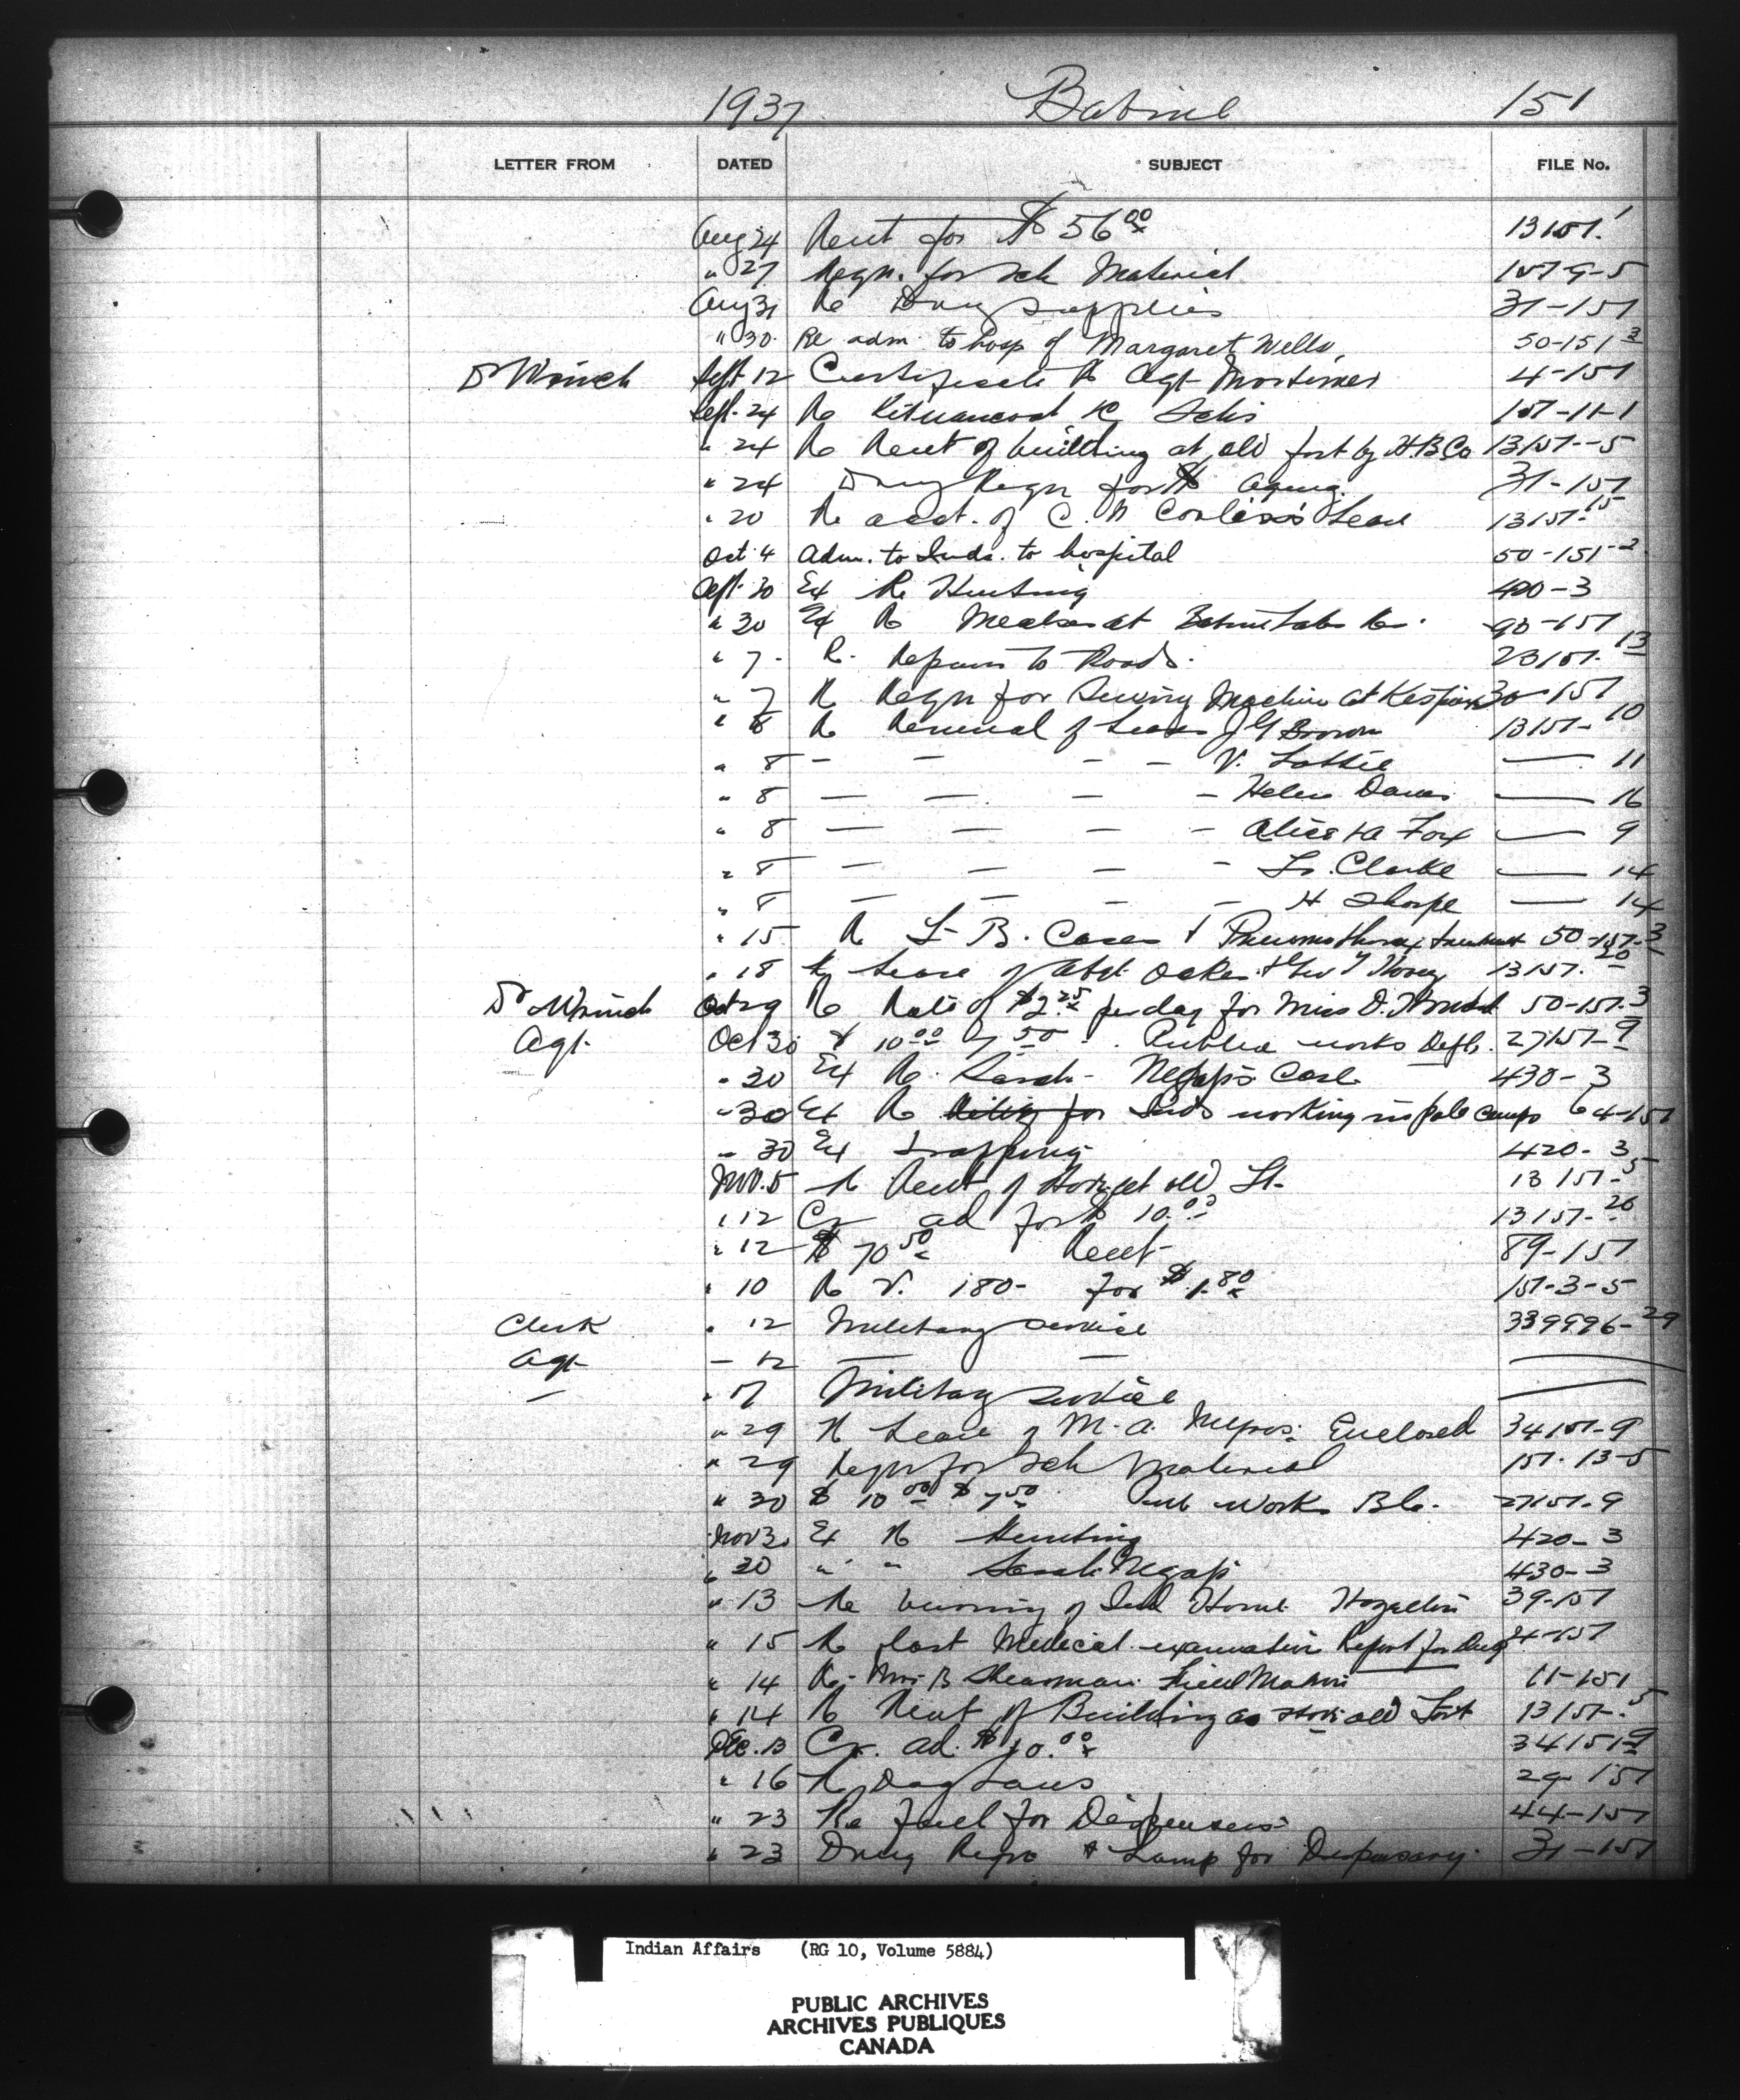 1937 Babine 151
LETTER FROM DATED SUBJECT FILE No.
Aug 24 Rent for $56.00 13151.1
" 27 Reqn. for Sch Material 151-9-5
Aug 31 Re Drug supplies 31-151
" 30. Re adm. to hosp of Margaret Wells, 50-151-3
Dr Wrinch Sept 12 Certificate Re Agt Mortimer 4-151
Sept. 24 Re Kitwancool 151-11-1
" 24 Re Rent of building at old fort by H.B.Co 13151-5
" 24 Drug Reqn for 31-151
" 20 Re acct. of C. Lease 13151-15
Oct 4 Adm. to Inds. to hospital 50-151-2
Sept. 30 Ex Re Hunting 420-3
" 30 Ex Re Measles at Babine Lake 90-151
" 7. R. Repairs to Roads. 23151-13
" 7 Re Reqn for Sewing Machine at Kispiox 30-151
" 8 Re Renewal of Lease J G Brown 13151-10
" 8 — — — — V. Lattie — 11
" 8 — — — — Helen Davis — 16
" 8 — — — — Alice Fox — 9
" 8 — — — — Clarke — 14
" 8 — — — — H Sharpe — 14
" 15 Re T-B. Cases & Pneumothorax treatment 50-151-3
" 18 Re Lease of Oakes & 13151-20
Dr Wrinch Oct 29 Re Rate of $2.25 per day for Miss O. 50-151-3
Agt. Oct 30 $10.00 7.50 Public works Dept. 27151-9
" 30 Ex Re. Sarah Case 430-3
" 30 Ex Re Inds working in pole camps 64-151
" 30 Ex trapping 420-3
Nov. 5 Re Rent of old Ft. 13151-5
" 12 Cr ad for $10.00 13151-20
" 12 $70.50 Rent 89-151
" 10 Re V. 180- for $1.80 151-3-5
Clerk " 12 Military Service 339996-29
Agt — 12 — — —
— " 17 Military service —
" 29 Re Lease of M. A. Myros. Enclosed 34151-9
" 29 Reqn for Sch Material 151-13-5
" 30 $10.00 $7.50 Pub Works B.C. 27151-9
Nov 30 Ex Re Hunting 420-3
" 30 " " Sarah 430-3
" 13 Re burning of Ind Home Hazelton 39-151
" 15 Re last Medical examination Report for 4-151
" 14 Re. Mrs B Shearman Field Matron 11-151
" 14 Re Rent of Building as store old Fort 13151-5
Dec. 13 Cr. ad. $10.00 34151-9
" 16 Re Dog Laws 29-151
" 23 Re fuel for Dispensers 44-151
" 23 Drug Reqn & Lamp for Dispensary. 31-151
Indian Affairs (RG 10, Volume 5884)
PUBLIC ARCHIVES
ARCHIVES PUBLIQUES
CANADA